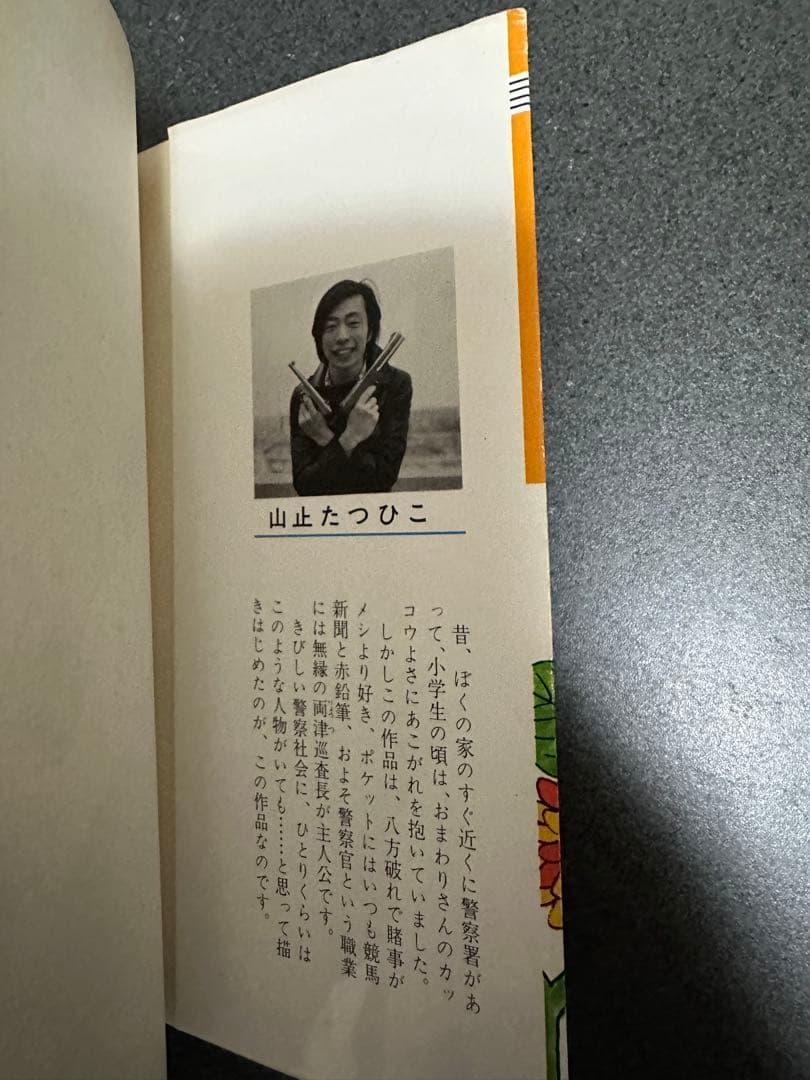 山止たつひこ
昔、ぼくの家のすぐ近くに警察署があ
って、小学生の頃は、おまわりさんのカッ
コウよさにあこがれを抱いていました。
しかしこの作品は、八方破れで賭事が
メシより好き、ポケットにはいつも競馬
新聞と赤鉛筆、およそ警察官という職業
には無縁の両津巡査長が主人公です。
きびしい警察社会に、ひとりくらいは
このような人物がいても……と思って描
きはじめたのが、この作品なのです。